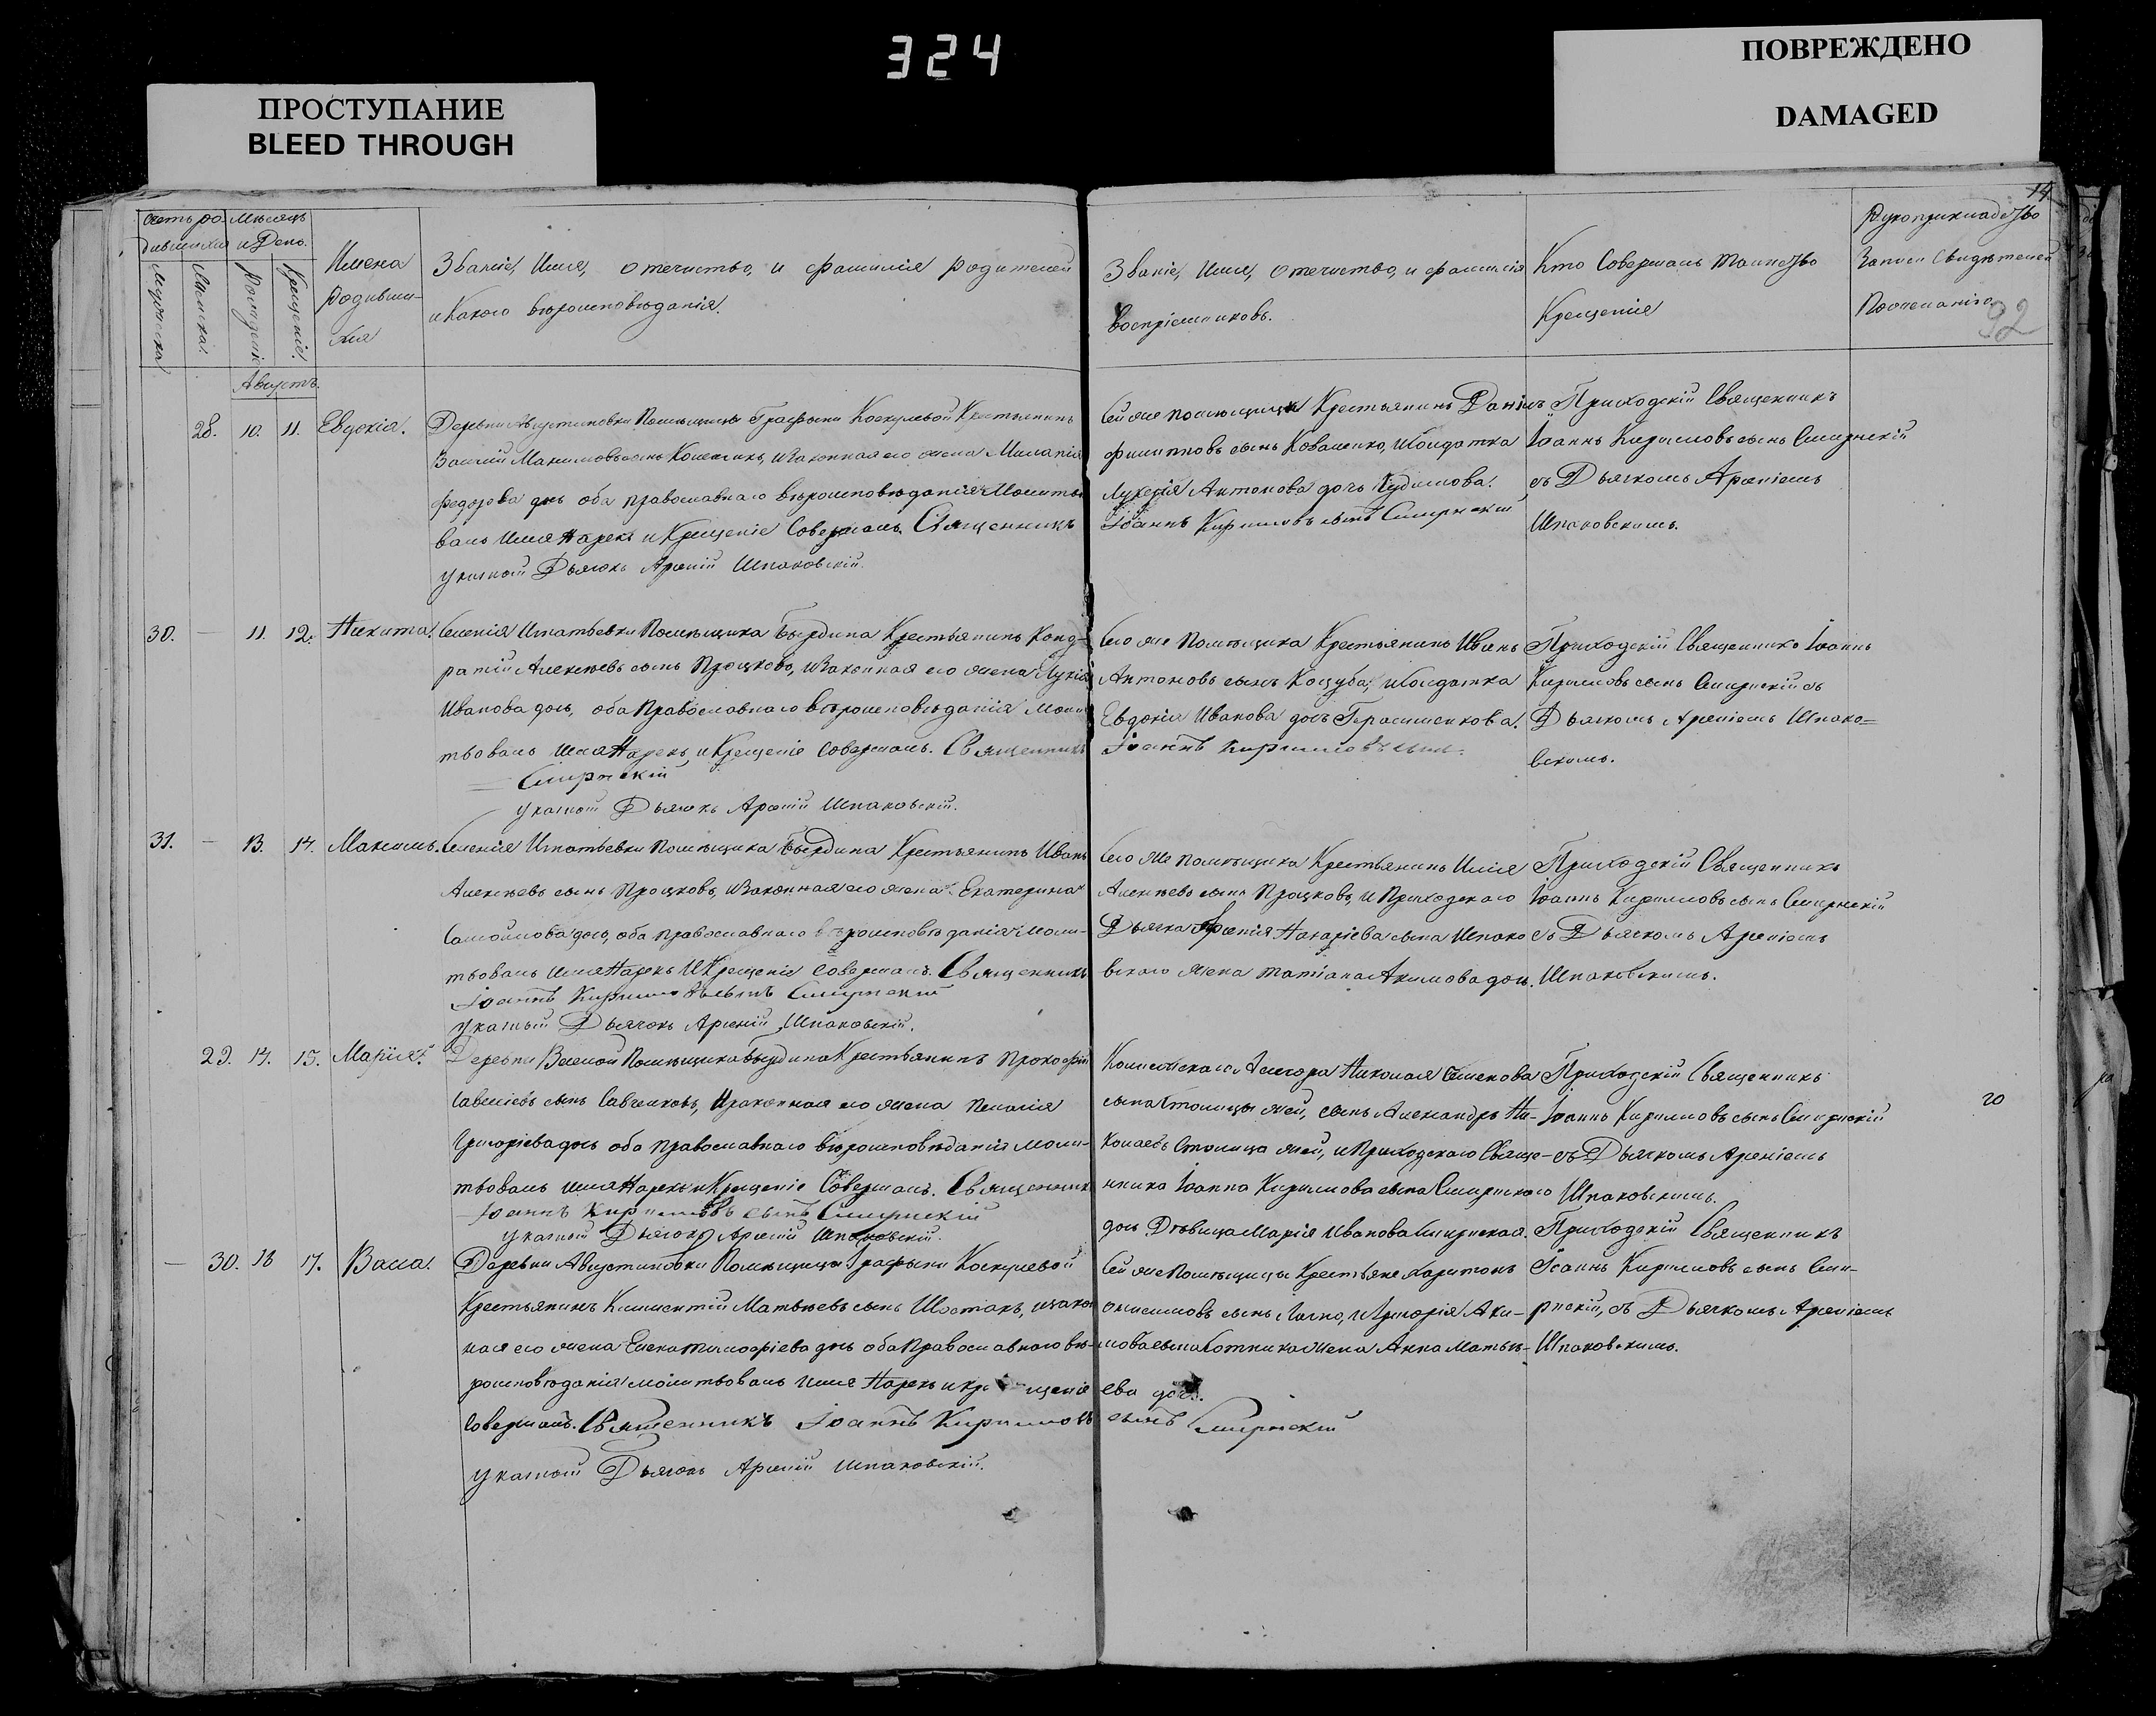 324
ПРОСТУПАНИЕ
BLEED THROUGH
ПОВРЕЖДЕНО
DAMAGED
14.
92
Счетъ ро-
дившихся
Мѣсяцъ
и День.
Мужеска
Женска.
Рожденія
Крещенія.
Имена
родивши-
хся
Званіе, Имя, отечество, и фамилія родителей
и какого вѣроисповѣданія.
Званіе, Имя, отечество, и фамилія
воспріемниковъ.
Кто Совершалъ таинство
Крещенія
Рукоприкладство
Записи Свидѣтелей
по желанію
Августъ.
28. 10. 11. Евдокія.
Деревни Августиновки Помѣщицы Графыни Крестьянинъ
Василій Максимовъ сынъ и Законная его жена Миланія
Федорова дочь оба православнаго вѣроисповѣданія Молитво
валъ Имя Нарекъ и Крещеніе Совершалъ. Священникъ
указной Дьячокъ Арсеній Шпаковскій.
Сей же помѣщицы Крестьянинъ Данилъ
Филиповъ сынъ Коваленко, и Солдатка
Антонова дочь
Іоаннъ Кириловъ сынъ Смирнскій
Приходскій Священникъ
Іоаннъ Кириловъ сынъ Смирнскій
съ Дьячкомъ Арсеніемъ
Шпаковскимъ.
30. — 11. 12. Никита.
Селенія Игнатьевки Помѣщика Бырдина Крестьянинъ Конд-
ратій Алексѣевъ сынъ Процковъ, и Законная его жена
Иванова дочь, оба Православнаго вѣроисповѣданія Моли
твовалъ Имя Нарекъ, и Крещеніе совершалъ. Священникъ
Смирнскій
указной Дьячокъ Арсеній Шпаковскій.
Сего же Помѣщика Крестьянинъ Иванъ
Антоновъ сынъ Коцуба, и Солдатка
Евдокія Иванова дочь Герасименкова.
Іоаннъ Кирилловъ сынъ
Приходскій Священникъ Іоаннъ
Кириловъ сынъ Смирнскій съ
Дьячкомъ Арсеніемъ Шпако=
вскимъ.
31. — 13. 14. Максимъ.
Селенія Игнатьевки помѣщика Бырдина Крестьянинъ Иванъ
Алексѣевъ сынъ Процковъ, и Законная его жена Екатерина
Самойлова дочь, оба православнаго вѣроисповѣданія Моли-
твовалъ Имя Нарекъ И Крещеніе Совершалъ. Священникъ
Іоаннъ Кириловъ сынъ Смирнскій
указный Дьячокъ Арсеній Шпаковскій.
Сего же помѣщика Крестьянинъ Илія
Алексѣевъ сынъ Процковъ, и Приходскаго
Дьячка Арсенія Назаріева сына Шпако
вскаго жена татіана Акимова дочь.
Приходскій Священникъ
Іоаннъ Кириловъ сынъ Смирнскій
съ Дьячкомъ Арсеніемъ
Шпаковскимъ.
29. 14. 15. Марія.
Деревни Помѣщика Бырдина Крестьянинъ Прокофій
Савеліевъ сынъ Савченковъ, и законная его жена Пелагія
Григоріева дочь оба православнаго вѣроисповѣданія моли-
твовалъ имя Нарекъ и Крещеніе Совершалъ. Священник
Іоаннъ Кириловъ сынъ Смирнскій
указный Дьячокъ Арсеній Шпаковскій.
Николая Семенова
сына сынъ Александръ Ни-
колаевъ и Приходскаго Свяще-
нника Іоанна Кирилова сына Смирнскаго
дочь Дѣвица Марія Иванова Смирнская
Приходскій Священникъ
Іоаннъ Кириловъ сынъ Смирнскій
съ Дьячкомъ Арсеніемъ
Шпаковскимъ.
20
— 30. 16 17. Васса.
Деревни Августиновки Помѣщицы Графыни
Крестьянинъ Климентій Матвѣевъ сынъ Шостакъ, и закон
ная его жена Елена Тимофіева дочь оба Православнаго вѣ-
роисповѣданія молитвовалъ имя Нарекъ и кре щеніе
Совершалъ. Священникъ Іоаннъ Кириловъ сынъ Смирнскій
указной Дьячокъ Арсеній Шпаковскій.
Сей же Помѣщицы Крестьяне Харитонъ
Онисимовъ сынъ и Григорія Аки-
мова сына Сотника жена Анна Матвѣ-
ева дочь.
Приходскій Священникъ
Іоаннъ Кириловъ сынъ Сми-
рнскій, съ Дьячкомъ Арсеніемъ
Шпаковскимъ.